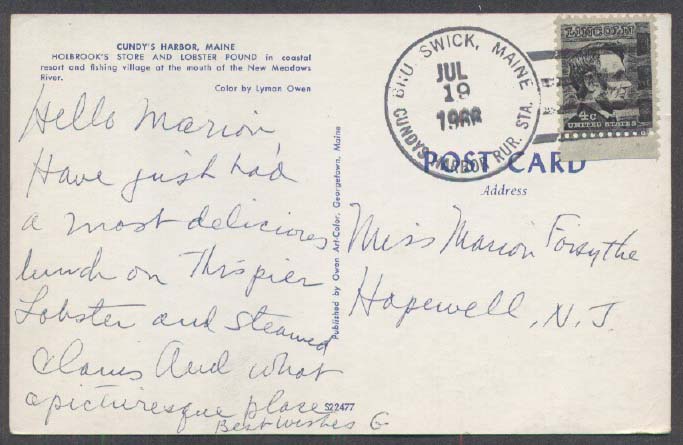 CUNDY'S HARBOR, MAINE
HOLBROOK'S STORE AND LOBSTER POUND in coastal
resort and fishing village at the mouth of the New Meadows
River.
Color by Lyman Owen
Hello Marion,
Have just had
a most delicious
lunch on This pier
Lobster and steamed
clams And what
a picturesque place
Best Wishes G
S22477
Published by Owen Art-Color, Georgetown, Maine
BRU SWICK, MAINE
JUL
19
CUNDYS HARBOR RUR. STA.
LINCOLN
4c
UNITED STATES
POST CARD
Address
Miss Marion Forsythe
Hopewell, N. J.